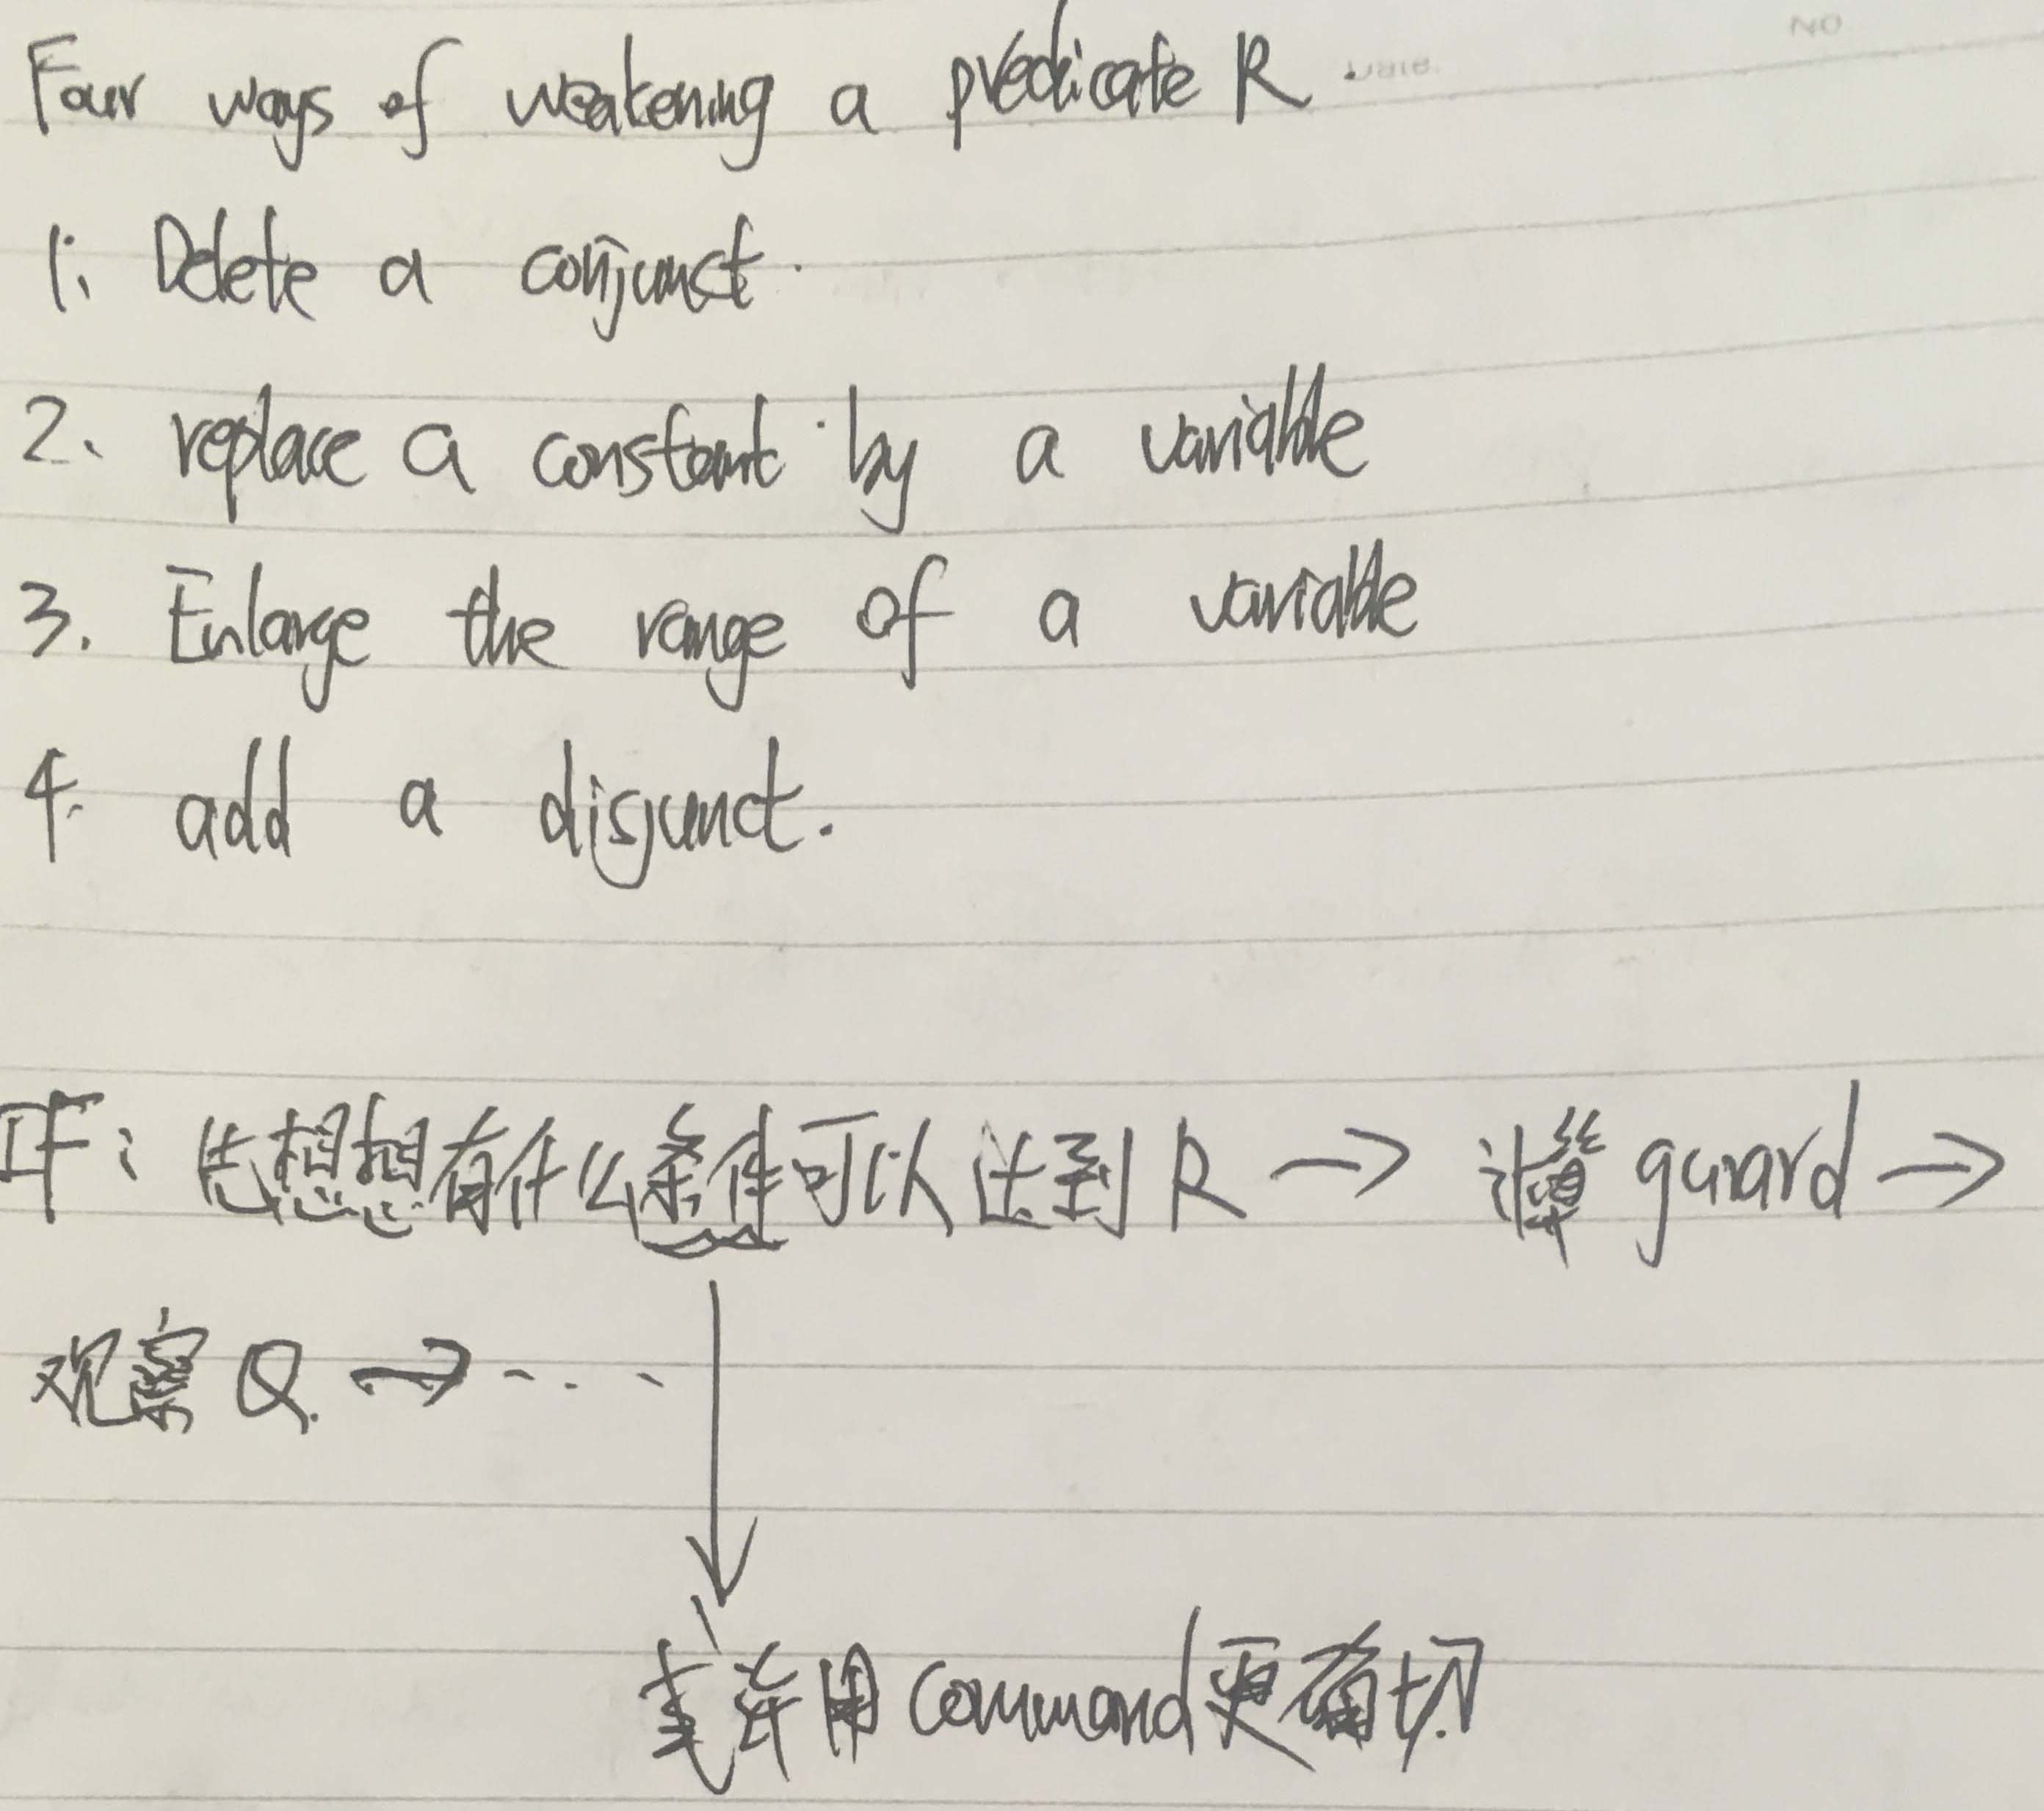 Four ways of weakening a predicate R.
1. Delete a conjunct.
2. replace a constant by a variable
3. Enlarge the range of a variable
4. add a disjunct.
IF: 先想想有什么条件可以达到 R → 计算 guard →
观察 Q. → ....
↓
用 command 更确切
NO